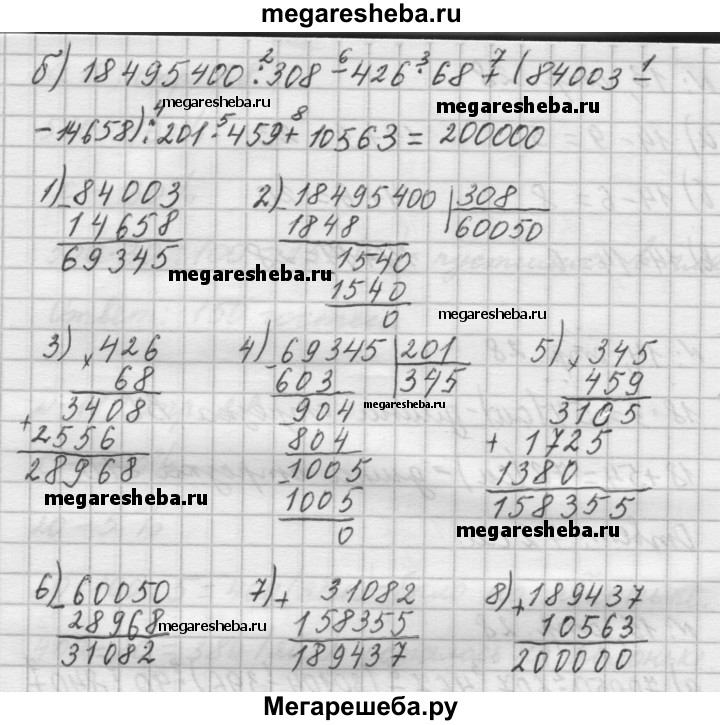 megaresheba.ru
б) 18495400 : 308 − 426 · 68 + (84003 −
2 6 3 7 1
megaresheba.ru megaresheba.ru
− 14658) : 201 · 459 + 10563 = 200000
4 5 8
1) 84003 2) 18495400 | 308
− 14658 1848 60050
69345 1540
megaresheba.ru megaresheba.ru
1540
0
3) × 426 4) − 69345 | 201 5) × 345
68 603 345 459
3408 − 904 megaresheba.ru 3105
+ 2556 804 + 1725
28968 − 1005 1380
megaresheba.ru 1005 158355
0 megaresheba.ru
6) − 60050 7) + 31082 8) + 189437
28968 158355 10563
megaresheba.ru megaresheba.ru
31082 189437 200000
Мегарешеба.ру